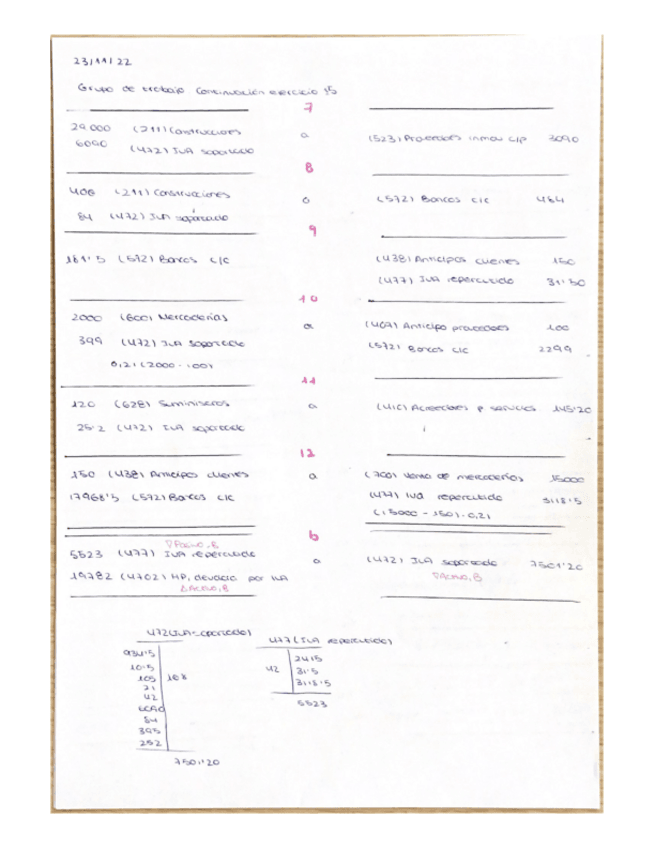 23/11/22
Grupo de trabajo Continuación ejercicio 15
7
29.000 (211) Construcciones a (523) Proveedores inmov c/p 3090
6090 (472) IVA soportado
8
400 (211) Construcciones a (572) Bancos c/c 484
84 (472) IVA soportado
9
181'5 (572) Bancos c/c (438) Anticipos clientes 150
(477) IVA repercutido 31'50
10
2000 (600) Mercaderías a (407) Anticipo proveedores 100
399 (472) IVA soportado (572) Bancos c/c 2299
0,21 (2000-100)
11
120 (628) Suministros a (410) Acreedores p servicios 145'20
25'2 (472) IVA soportado
12
150 (438) Anticipos clientes a (700) Venta de mercaderías 15000
17968'5 (572) Bancos c/c (477) IVA repercutido 3118'5
(15000 - 150) · 0,21
b
5523 (477) IVA repercutido a (472) IVA soportado 7501'20
∇Pasivo, B ∇Activo, B
(4702) HP, por IVA
ΔActivo, B
472 (IVA soportado) 477 (IVA repercutido)
934'5 2415
10'5 42 31'5
105 3118'5
21 5523
42
6090
84
252
7501'20